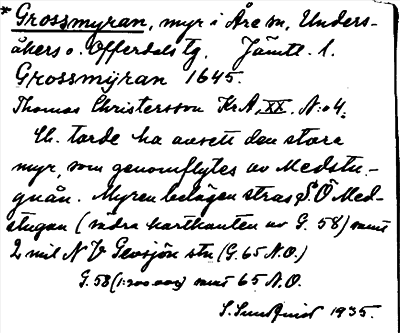 * Grossmyran, myr i Åre sn, Unders-
åkers o. Offerdals tg. Jämtl. l.
Grossmÿran 1645.
Thomas Christersson KrA, XX, N:o 4.
Th. torde ha avsett den stora
myr, som genomflytes av Medstu-
guån. Myren belägen strax S Ö Med-
stugan (södra kartkanten av G. 58) samt
2 mil N V Gevsjön stn (G. 65 N.O.)
G. 58 (1:200 000) samt 65 N.O.
S. Sundquist 1935.